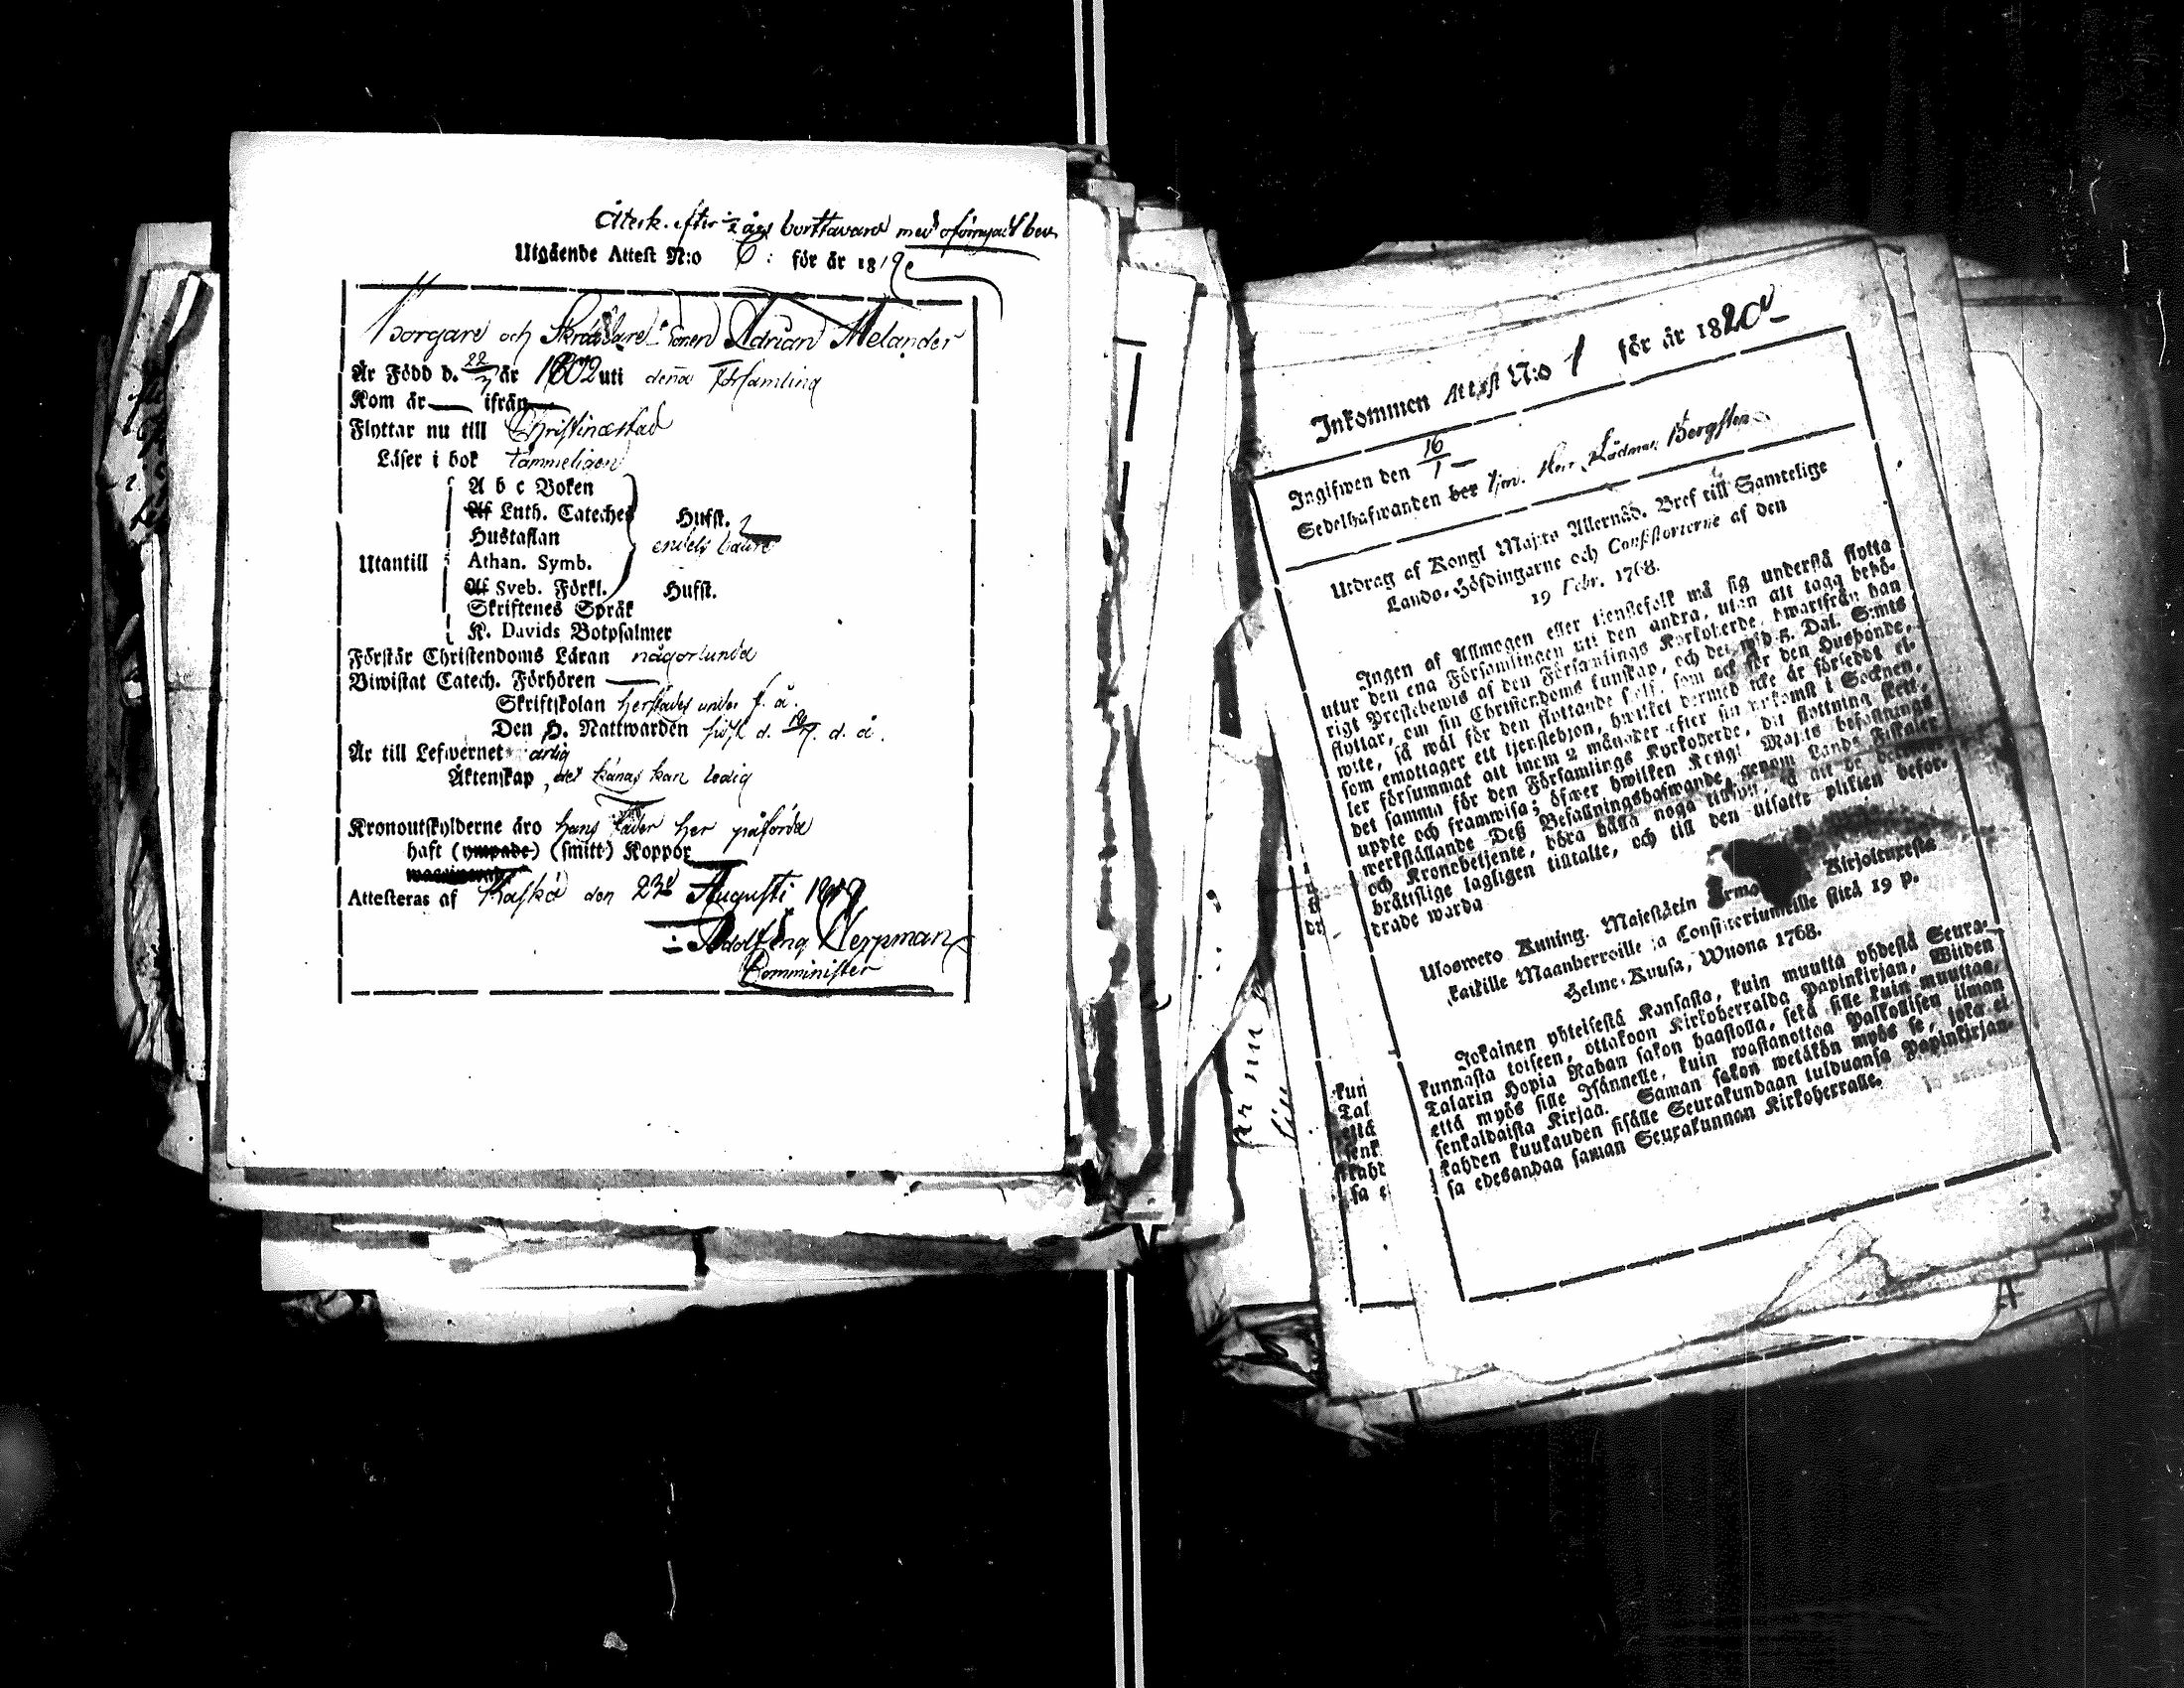 Återk. efter ½ års borttavaro med oförnyadt bev.
Utgående Attest N:o 6: för år 1819
Borgare och Skräddare Sonen Adrian Melander
Är Född d. 22/3 år 1802 uti denna Församling
Kom år — ifrån —
Flyttar nu till Christinæstad
Läser i bok tämmeligen
A b c Boken
Af Luth. Cateches Hufst.
Hustaflan endels bättre
Utantill Athan. Symb.
Af Sveb. Förkl. Hufst.
Skriftenes Språk
K. Davids Botpsalmer
Förstår Christendoms Läran någorlunda
Biwistat Catech. Förhören —
Skriftskolan herstädes under f. å.
Den H. Nattwarden d. d. å.
Är till Lefwernet ärlig
Äktenskap, det känas kan ledig
Kronoutskylderne äro hans Fader her påförda
haft (ympade) (smitt) Koppor
Attesteras af Kaskö den 23d Augusti 1819
Adolf Enq Nerpman
Comminister
Inkommen Attest N:o 1 för år 1820
Ingifwen den 16/1 —
Sedelhafwanden ber Herr Rådman Bergsten
Utdrag af Kongl Maj:ts Allernåd. Bref till Samtelige
Lands-Höfdingarne och Consistorierne af den
19 Febr. 1768.
Ingen af Allmogen eller tienstefolk må sig understå flytta
utur den ena Församlingen uti den andra, utan att taga behö-
rigt Prestebewis af den Församlings Kyrkoherde, hwarifrån han
flyttar, om sin Christendoms kunskap, och det wid 5. Dal. S:mts
wite, så wäl för den flyttande sjelf, som ock för den Husbonde,
som emottager ett tjenstehjon, hwilket dermed icke är försedt el-
ler försummat att inom 2 månader efter sin ankomst i Socknen,
det samma för den Församlings Kyrkoherde, dit flyttning skett,
uppte och framwisa; öfwer hwilken Kongl Maj:ts befallnings
werkställande Deß Befallningshafwande, genom Lands Fiskaler
och Kronobetjente, böra hålla noga tillsyn, så att de dermed
bråttslige lagligen tilltalte, och till den utsatte plikten befor-
drade warda
Ulosweto Kuning. Majestätin Armo Kirjoituxesta
kaikille Maanherroille ja Consistoriumeille siitä 19 p.
Helme-Kuusa, Wuona 1768.
Jokainen yhteisestä Kansasta, kuin muutta yhdestä Seura-
kunnasta toiseen, ottakoon Kirkoherralda Papinkirjan, Wiiden
Talarin Hopia Rahan sakon haastolla, sekä sille kuin muuttaa,
että myös sille Isännelle, kuin wastanottaa Palkollisen ilman
senkaldaista Kirjaa. Saman sakon wetäkön myös se, joka ei
kahden kuukauden sisälle Seurakundaan tulduansa Papinkirjan-
sa edesandaa saman Seurakunnan Kirkoherralle.